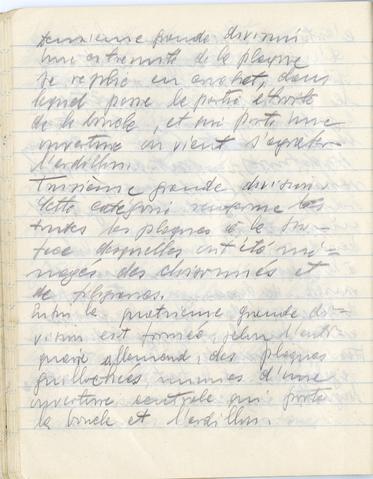 deuxième grande division
Une extremité de la plaque
se replie en crochet, dans
lequel passe la partie étroite
de la boucle, et qui porte une
ouverture où vient s'agrafer
l'ardillon.
Troisième grande division.
Cette categorie renferme les
toutes les plaques à la sur-
face desquelles ont été mé-
nagés des cloisonnés et
de filigranes.
Enfin la quatrième grande di-
vision est formée, selon l'anti-
quaire allemand, des plaques
guillochées, munies d'une
ouverture centrale qui porte
la boucle et l'ardillon.